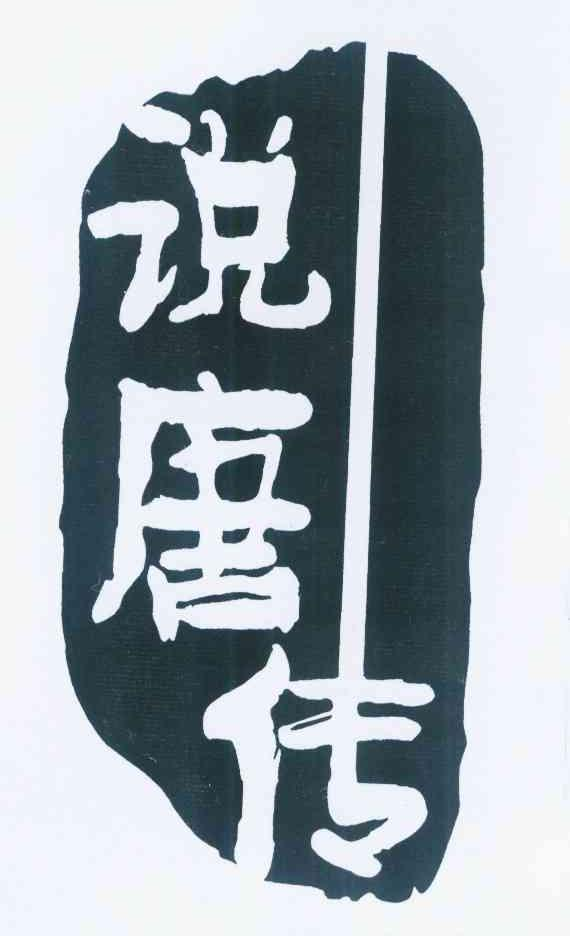 说唐传